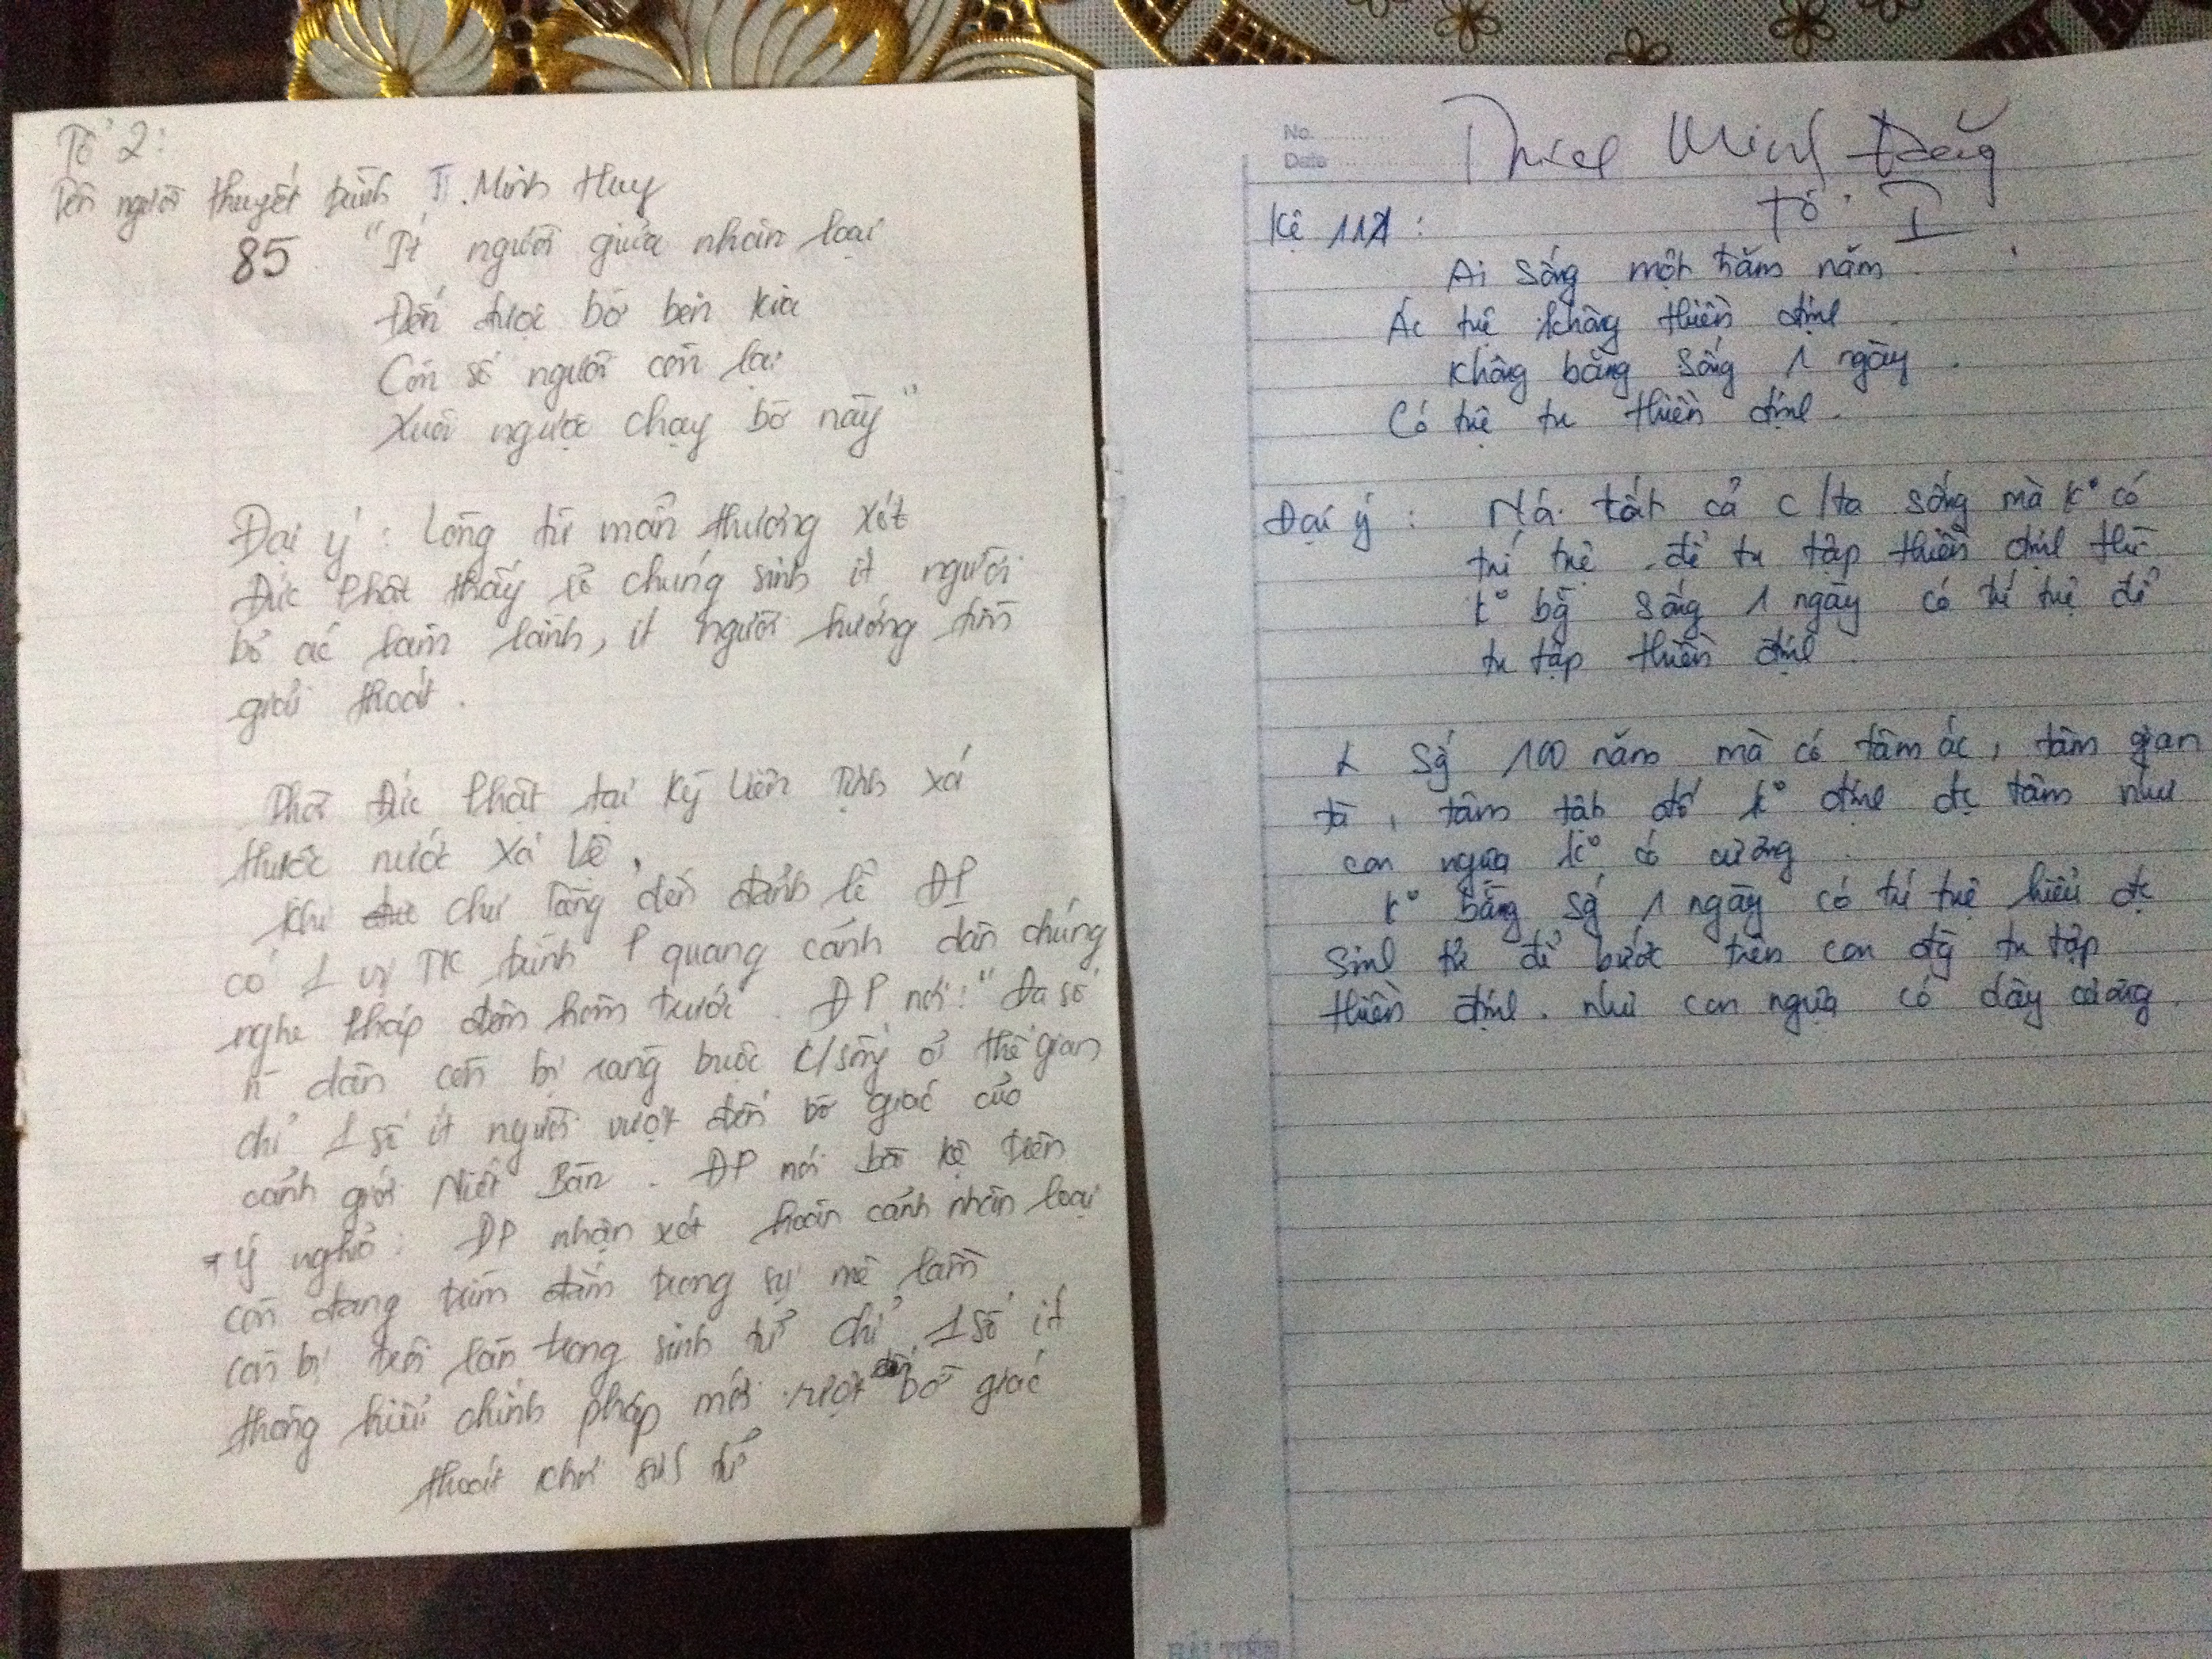 Tổ 2:
Tên người thuyết trình T. Minh Huy
85 "Ít người giữa nhân loại
Đến được bờ bên kia
Còn số người còn lại
Xuôi ngược chạy bờ này"
Đại ý: Lòng từ mẫn thương xót
Đức Phật thấy số chúng sinh ít người
bỏ ác làm lành, ít người hướng tìm
giải thoát.
Thời Đức Phật tại Kỳ Viên Tịnh Xá
thước nước Xá Vệ,
khi chư Tăng đến đảnh lễ ĐP
có 1 vị TK trình P quang cảnh dân chúng
nghe Pháp đêm hôm trước. ĐP nói: "Đa số
dân còn bị ràng buộc c/sống ở thế gian
chỉ 1 số ít người vượt đến bờ giác của
cảnh giới Niết Bàn. ĐP nói bài kệ trên
+ Ý nghĩa: ĐP nhận xét hoàn cảnh nhân loại
còn đang trầm đắm trong sự mê lầm
còn bị trôi lăn trong sinh tử chỉ 1 số ít
thông hiểu chính pháp mới vượt đến bờ giác
thoát khỏi tử
No.
Date
Minh Đăng
Tổ: I
Kệ 111:
Ai sống một trăm năm
Ác tuệ không thiền định
Không bằng sống 1 ngày.
Có tuệ tu thiền định.
Đại ý: tất cả c/ta sống mà k° có
trí tuệ để tu tập thiền định thì
k° bg sống 1 ngày có trí tuệ để
tu tập thiền định
Sg 100 năm mà có tâm ác, tâm gian
tà, tâm tật đố k° định đc tâm như
con ngựa k° có cương
k° bằng sg 1 ngày có trí tuệ hiểu đc
sinh tử để bước trên con đg tu tập
thiền định. như con ngựa có dây cương.
HẢI TIẾN